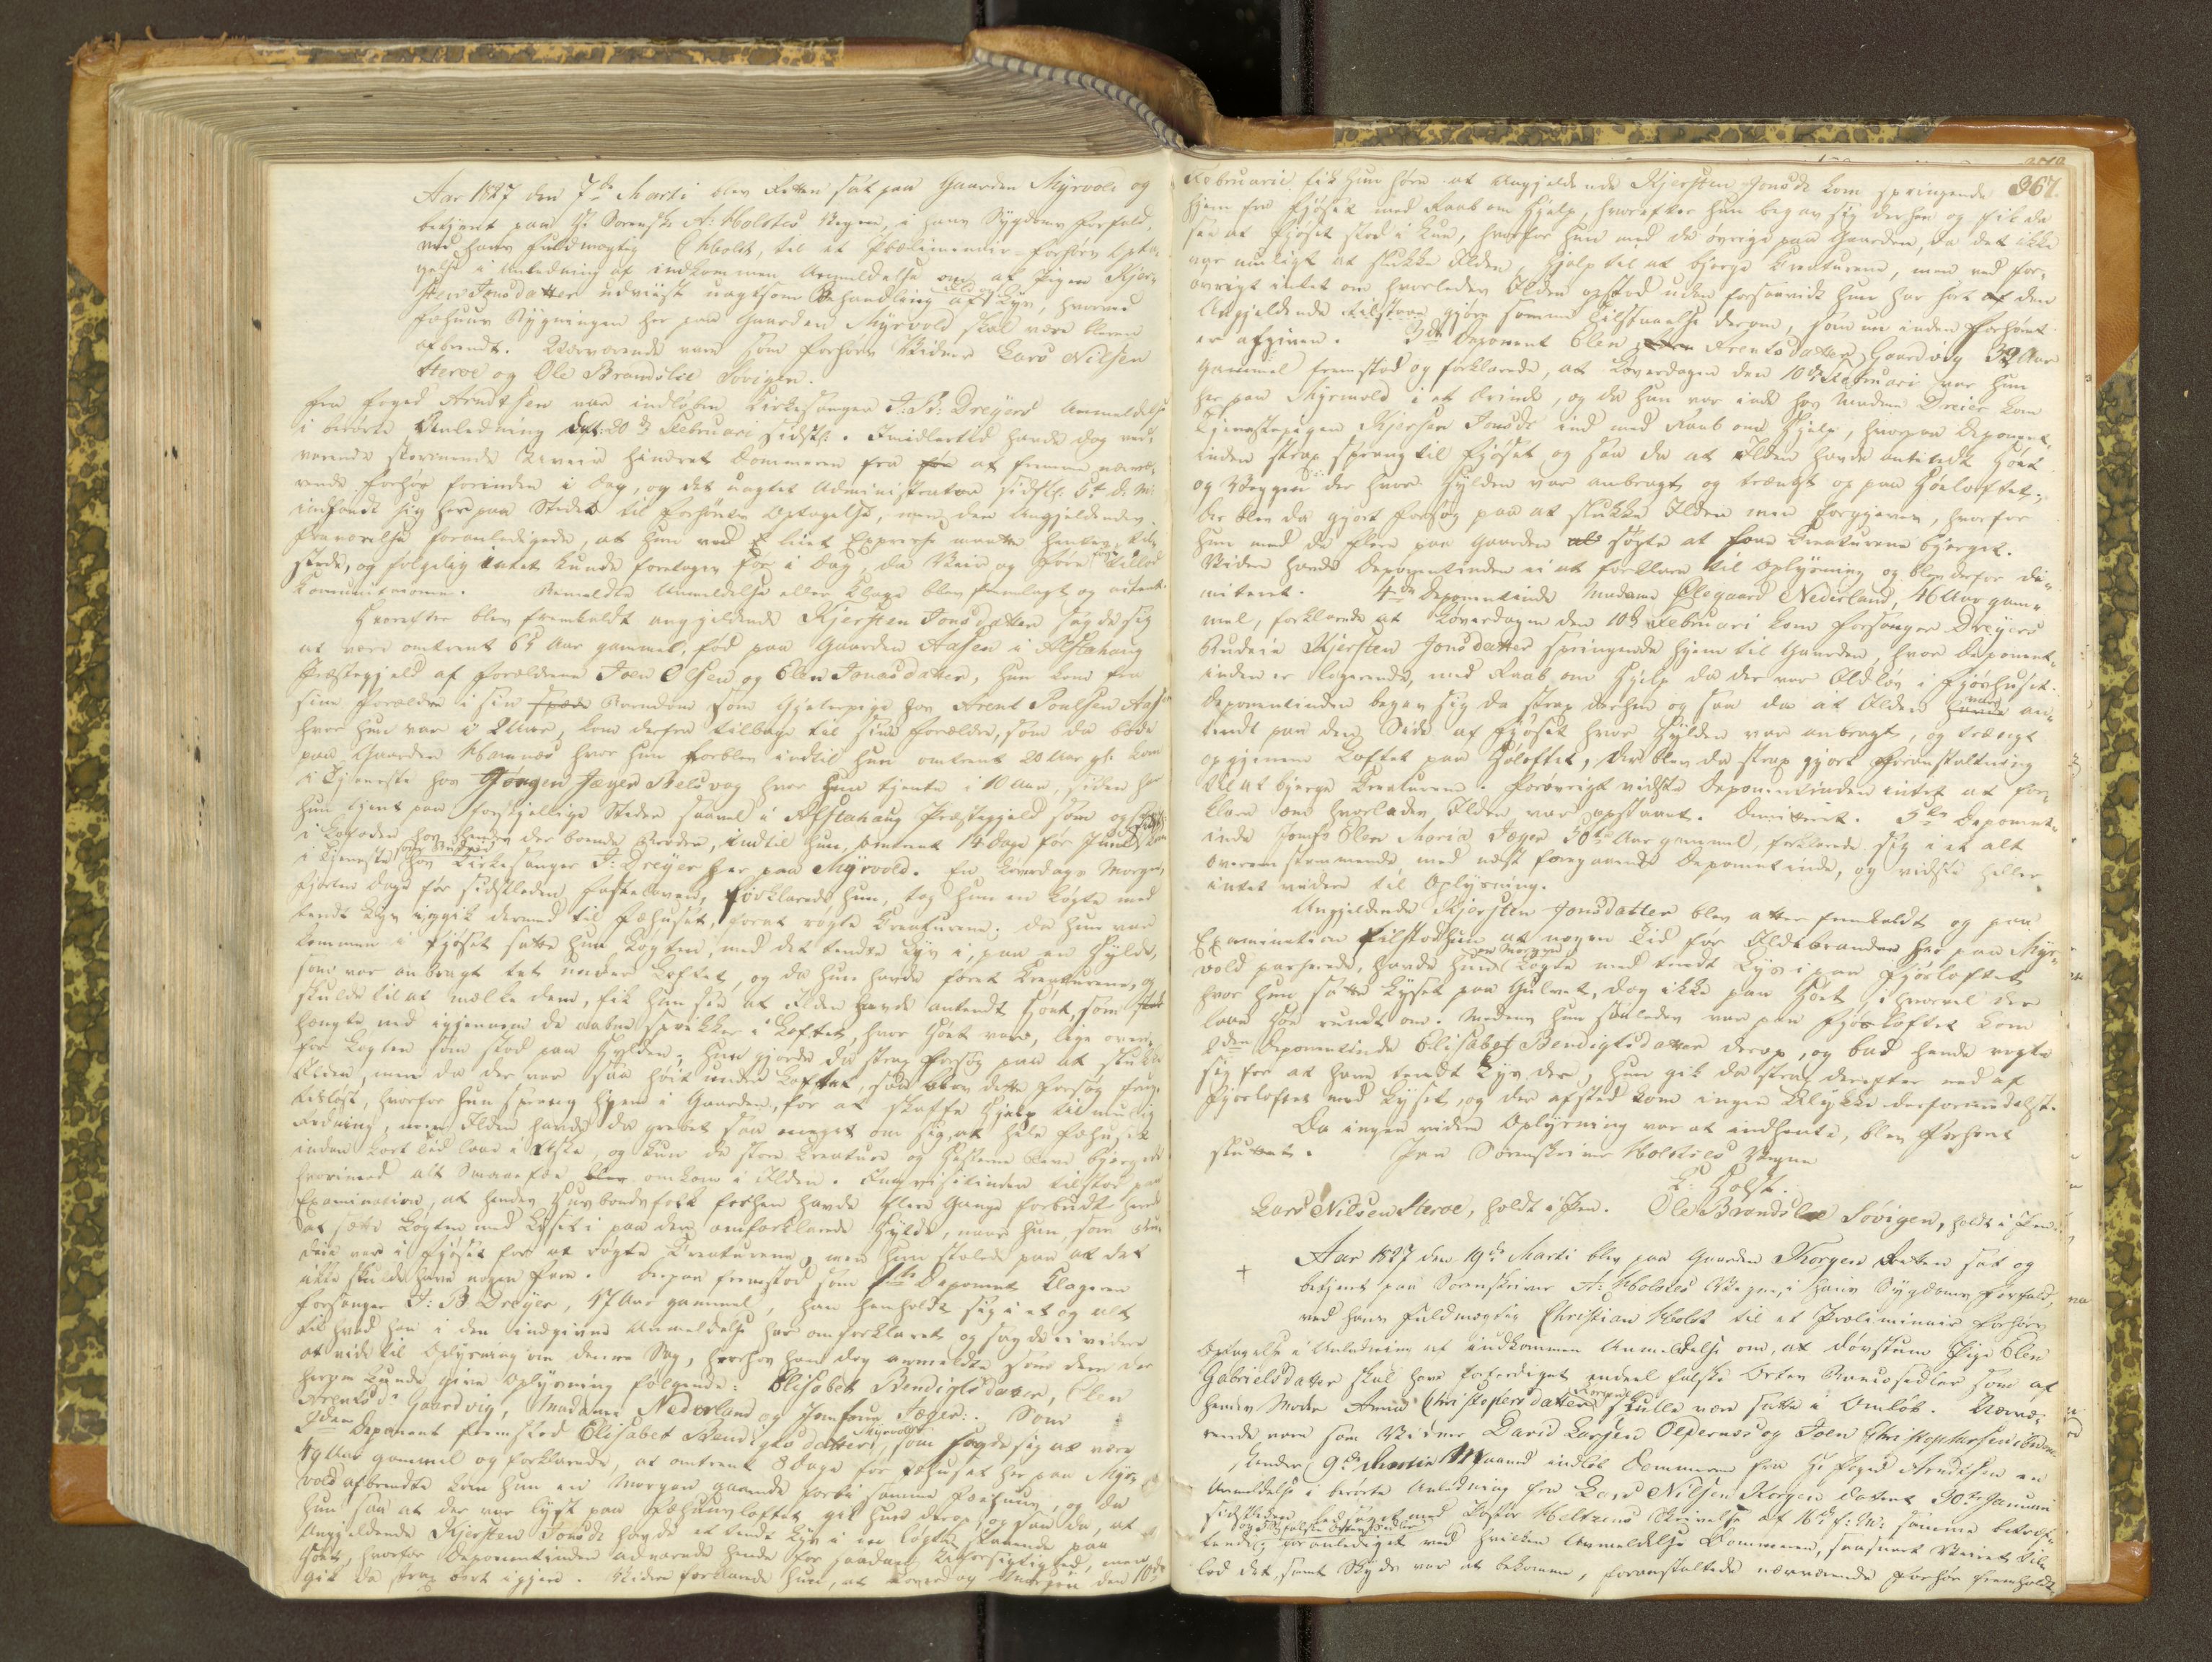 Aar 1827 den 7de Marti blev Retten sat paa Gaarden Myrvold og
betjent paa Hr Sorenskr A: Holstes Vegne, i hans Sygdoms Forfald,
ved hans Fuldmægtig C Holst, til et Præliminair-Forhørs Opta-
gelse i Anledning af indkommen Anmeldelse om af Pigen Kjer-
sten Jonsdatter udviist uagtsom Behandling af Ild og Lys, hvorved
Fæhuus Bygningen her paa Gaarden Myrvold skal være bleven
afbrændt. Nærværende vare som Forhørs Vidner Lars Nilsen
Herøe og Ole Brandslie Søvigen.
Fra Foged Arndtsen var indløben Kirkesanger J: B: Dreyers Anmeldelse
i berørte Anledning dat: 20de Februari sidstl. Imidlertid havde dog ved-
varende stormende Veir hindret Dommeren fra at fremme nærvæ-
rende Forhør forinden i Dag, og det uagtet Administrator sidstl. 6te d. M.
indfandt sig her paa Stedet til Forhørets Optagelse, men den Angjeldendes
Fraværelse foranledigede, at hun ved Expresse maatte hentes til
stede, og følgelig intet kunde foretages før i Dag, da Veir og Føre tillod
Communicationen. Bemeldte Anmeldelse eller Klage blev fremlagt og
Hvorefter blev fremkaldt angjeldende Kjersten Jonsdatter sagde sig
at være omtrent Aar gammel, fød paa Gaarden Aasen i Alstahaug
Præstegjeld af Forældrene Joen Olsen og Elen Jonasdatter, hun kom fra
sine Forældre i sin Barndom som Gjeterpige hos Arent Poulsen
hvor hun var i 2 Aar, kom derfra tilbage til sine Forældre, som da boede
paa Gaarden hvor hun forblev indtil hun omtrent 20 Aar gl. kom
i Tjeneste hos Jørgen Jæger hvor hun tjente i 10 Aar, siden har
hun tjent paa forskjellige Steder saavel i Alstahaug Præstegjeld som og
i hos hendes der boende Broder, indtil hun, omtrent 14 Dage før Juul kom
i Tjeneste hos Kirkesanger J: Dreyer her paa Myrvold. En Løverdags Morgen,
fjorten Dage før sidstleden Fastelavn, forklarede hun, tog hun en Løgte med
tændt Lys i, gik dermed til Fæhuset, for at røgte Creaturene. Da hun var
kommen i Fjøset satte hun Løgten, med det tændte Lys i, paa en Hylde,
som var anbragt tæt under Loftet, og da hun havde foret Creaturene, og
skulde til at melke dem, fik hun see at Ilden havde antændt Høet, som
hængte ned igjennem de aabne Sprækker i Loftet, hvor Høet var, lige over
for Løgten som stod paa Hylden; Hun gjorde da strax Forsøg paa at slukke
Ilden, men da der var saa høit under Loftet, saa blev dette Forsøg frug-
tesløst, hvorfor hun sprang hjem i Gaarden, for at skaffe Hjelp til muelig
Redning, men Ilden havde da grebet saa meget om sig, at hele Fæhuset
inden kort Tid laae i Aske, og kun de store Creature og Hestene bleve bjergede
hvorimod alt Smaafæe omkom i Ilden. Inqvisitinden tilstod paa
Examination, at hendes Huusbondsfolk forhen havde flere Gange forbudet hende
at sætte Løgten med Lyset i paa den omforklarede Hylde, naar hun, som
var i Fjøset for at røgte Creaturene, men hun stolede paa at det
ikke skulde have nogen Fare. Derpaa fremstod som 1ste Deponent Klageren
Forsanger J: B Dreyer, 47 Aar gammel, han henholdt sig i et og alt
til hvad han i den indgivne Anmeldelse har omforklaret og sagde ei videre
at vide til Oplysning om denne Sag, hvorhos han dog anmeldte som dem der
herom kunde give Oplysning følgende: Elisabet Bendigtsdatter, Elen
Arentsdr Gaardvig, Madame Nederland og Jomfrue Jæger:. Som
2den Deponent fremstod Elisabet Bendigtsdatter Myrvold, som sagde sig at være
49 Aar gammel og forklarede, at omtrent 8 Dage før Fæhuset her paa Myr-
vold afbrændte kom hun en Morgen gaaende forbi samme Fæehuus, og da
hun saa at der var lyst paa Fæhuusloftet gik hun derop, og saa da, at
Angjeldende Kjersten Jonsdr havde et tændt Lys i en Løgte staaende paa
Høet, hvorfor Deponentinden advarede hende for saadan Uforsigtighed, men
gik da strax bort igjen. Videre forklarede hun, at Løverdag Morgen den 10de
367.
Februarii fik hun høre at Angjeldende Kjersten Jonsdr kom springende
hjem fra Fjøset med Raab om Hjelp, hvorefter hun begav sig derhen og fik da
see at Fjøset stod i Lue, hvorfor hun med de øvrige paa Gaarden, da det ikke
var mueligt at slukke Ilden, hjalp til at bjerge Creaturene, men ved for-
øvrigt intet om hvorledes Ilden opstod uden forsaavidt hun har hørt af den
Angjeldende Kjersten gjøre samme Tilstaaelse derom, som nu inden Forhøret
er afgiven. 3die Deponent Elen Arentsdatter Gaardvig 32 Aar
gammel fremstod og forklarede, at Løverdagen den 10de Februari var hun
her paa Myrvold i et Ærinde, og da hun var inde hos Madme Dreier kom
Tjenestepigen Kjersten Jonsdr ind med Raab om Hjelp, hvorpaa Deponent-
inden strax sprang til Fjøset og saa da at Ilden havde antændt Høet
og Væggen der hvor Hylden var anbragt og trængt op paa Høeloftet;
der blev da gjort Forsøg paa at slukke Ilden men forgjeves, hvorfor
hun med de flere paa Gaarden søgte at faae Creaturene bjerget.
Videre havde Deponentinden ei at forklare til Oplysning og blev derfor di-
mitteret. 4de Deponentinde Madame Olegaard Nederland, 46 Aar gam-
mel, forklarede at Løverdagen den 10de Februari kom Forsanger Dreyers
Budeie Kjersten Jonsdatter springende hjem til Gaarden, hvor Deponent-
inden er logerende, med Raab om Hjelp da der var Ildløs i Fjøshuset.
Deponentinden begav sig da strax derhen og saa da at Ilden var an-
tændt paa den Side af Fjøset hvor Hylden var anbragt, og trængt
op gjennem Loftet paa Høloftet, der blev da strax gjort Foranstaltning
til at bjerge Creaturene. Forøvrigt vidste Deponentinden intet at for-
klare om hvorledes Ilden var opstaaet. Dimitteret. 5te Deponent-
inde Jomfr Elen Maria Jæger 30te Aar gammel, forklarede sig i et alt
overeensstemmende med næst foregaaende Deponentinde, og vidste heller
intet videre til Oplysning.
Angjeldende Kjersten Jonsdatter blev atter fremkaldt og paa
Examination tilstod hun at nogen Tid før Ildebranden her paa Myr-
vold passerede, havde hun en Morgen Løgte med tændt Lys i paa Fjøsloftet
hvor hun satte Lyset paa Gulvet, dog ikke paa Høet, ihvorvel der
laae Høe rundt om. Medens hun saaledes var paa Fjøsloftet kom
2den Deponentinde Elisabet Bendigtsdatter derop, og bad hende vogte
sig for at have tændt Lys der, hun gik da strax derefter ned af
Fjøsloftet med Lyset, og der afsted kom ingen Ulykke derformedelst.
Da ingen videre Oplysning var at indhente, blev Forhøret
sluttet. Paa Sorenskriver Holstes Vegne
C: Holst.
Lars Nilsen Herøe, holdt i Pen. Ole Brandslie Søvigen, holdt i Pen.
Aar 1827 den 19de Marti blev paa Gaarden Korgen Retten sat og
betjent paa Sorenskriver A: Holstes Vegne, i hans Sygdoms Forfald,
ved hans Fuldmægtig Christian Holst til et Præliminair Forhørs
Optagelse i Anledning af indkommen Anmeldelse om, at døvstum Pige Elen
Gabrielsdatter skal have forfærdiget endeel falske Orter Bancosedler som af
hendes Moder Anne Christophersdatter Korgen skulle være satte i Omløb. Nærvæ-
rende vare som Vidner David Larsen Olpernes og Joen Christophersen ibiden
Under 9de Martii indløb Dommeren fra Hr Foged Arndtsen en
Anmeldelse i berørte Anledning fra Lars Nilsen Korgen dateret 30te Januari
sidstleden, ledsaget med Pastor Heltzens Skrivelse af 16de f: M: samme betræf-
fende; foranlediget ved hvilken Anmeldelse Dommeren, saasnart Veiret til-
lod det, samt Skyds var at bekomme, foranstaltede nærværende Forhør fremholdt,